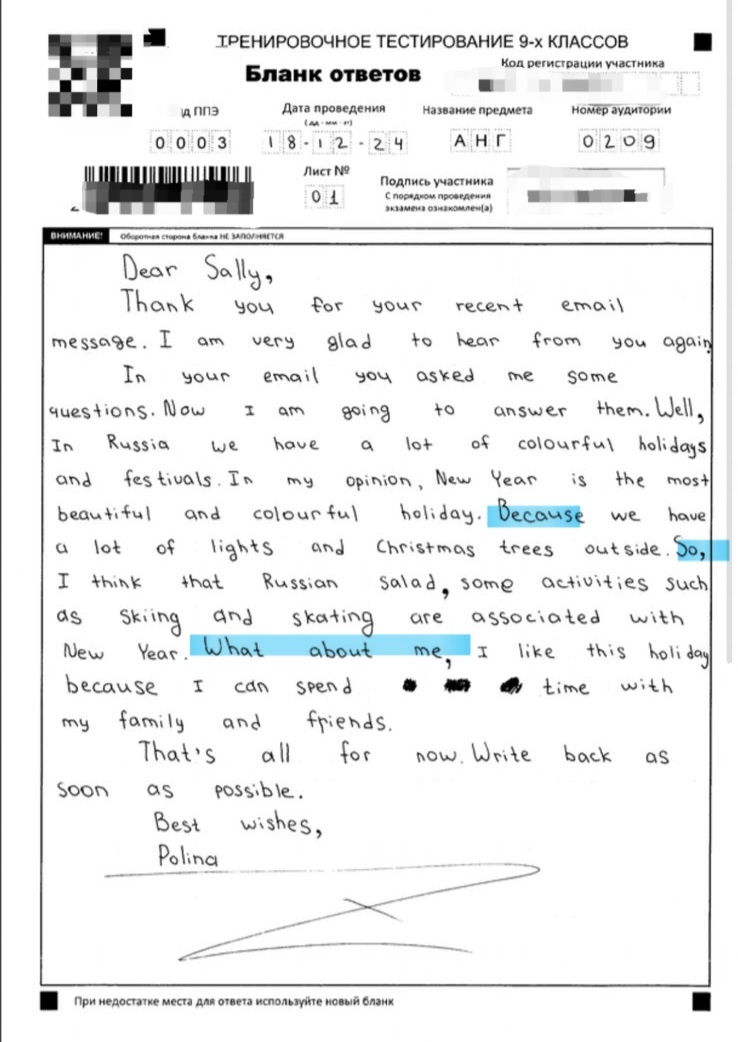 ТРЕНИРОВОЧНОЕ ТЕСТИРОВАНИЕ 9-х КЛАССОВ
Бланк ответов
Код регистрации участника
ППЭ
Дата проведения
Название предмета
Номер аудитории
(дд - мм - гг)
0003
18-12-24
АНГ
0209
Лист №
01
Подпись участника
С порядком проведения
экзамена ознакомлен(а)
ВНИМАНИЕ! Оборотная сторона бланка НЕ ЗАПОЛНЯЕТСЯ
Dear Sally,
Thank you for your recent email
message. I am very glad to hear from you again
In your email you asked me some
questions. Now I am going to answer them. Well,
In Russia we have a lot of colourful holidays
and festivals. In my opinion, New Year is the most
beautiful and colourful holiday. Because we have
a lot of lights and Christmas trees outside. So,
I think that Russian salad, some activities such
as skiing and skating are associated with
New Year. What about me, I like this holiday
because I can spend time with
my family and friends.
That's all for now. Write back as
soon as possible.
Best wishes,
Polina
При недостатке места для ответа используйте новый бланк